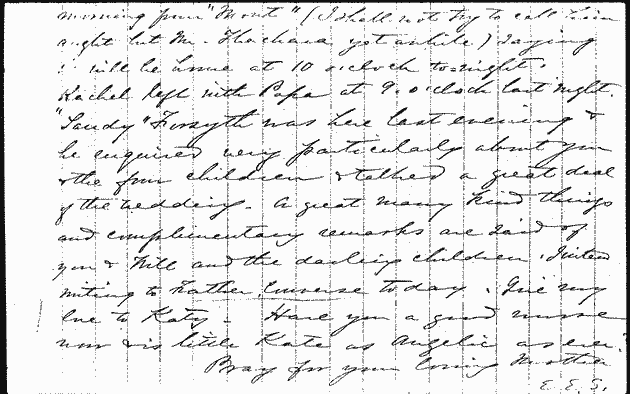 morning from "Mont" (I shall not try to call him
aught but Mr. Thackara yet awhile) saying
will be home at 10 o'clock to-night.
Rachel left with Papa at 9. o'clock last night.
"Sandy" Forsyth was here last evening &
he enquired very particularly about you
& the four children & talked a great deal
of the wedding. A great many kind things
and complimentary remarks are said of
you & Will and the darling children. I intend
writing to Father Converse today. Give my
love to Katy. Have you a good nurse
now & is little Kate as Angelic as ever?
Pray for your loving Mother
E. E. S.